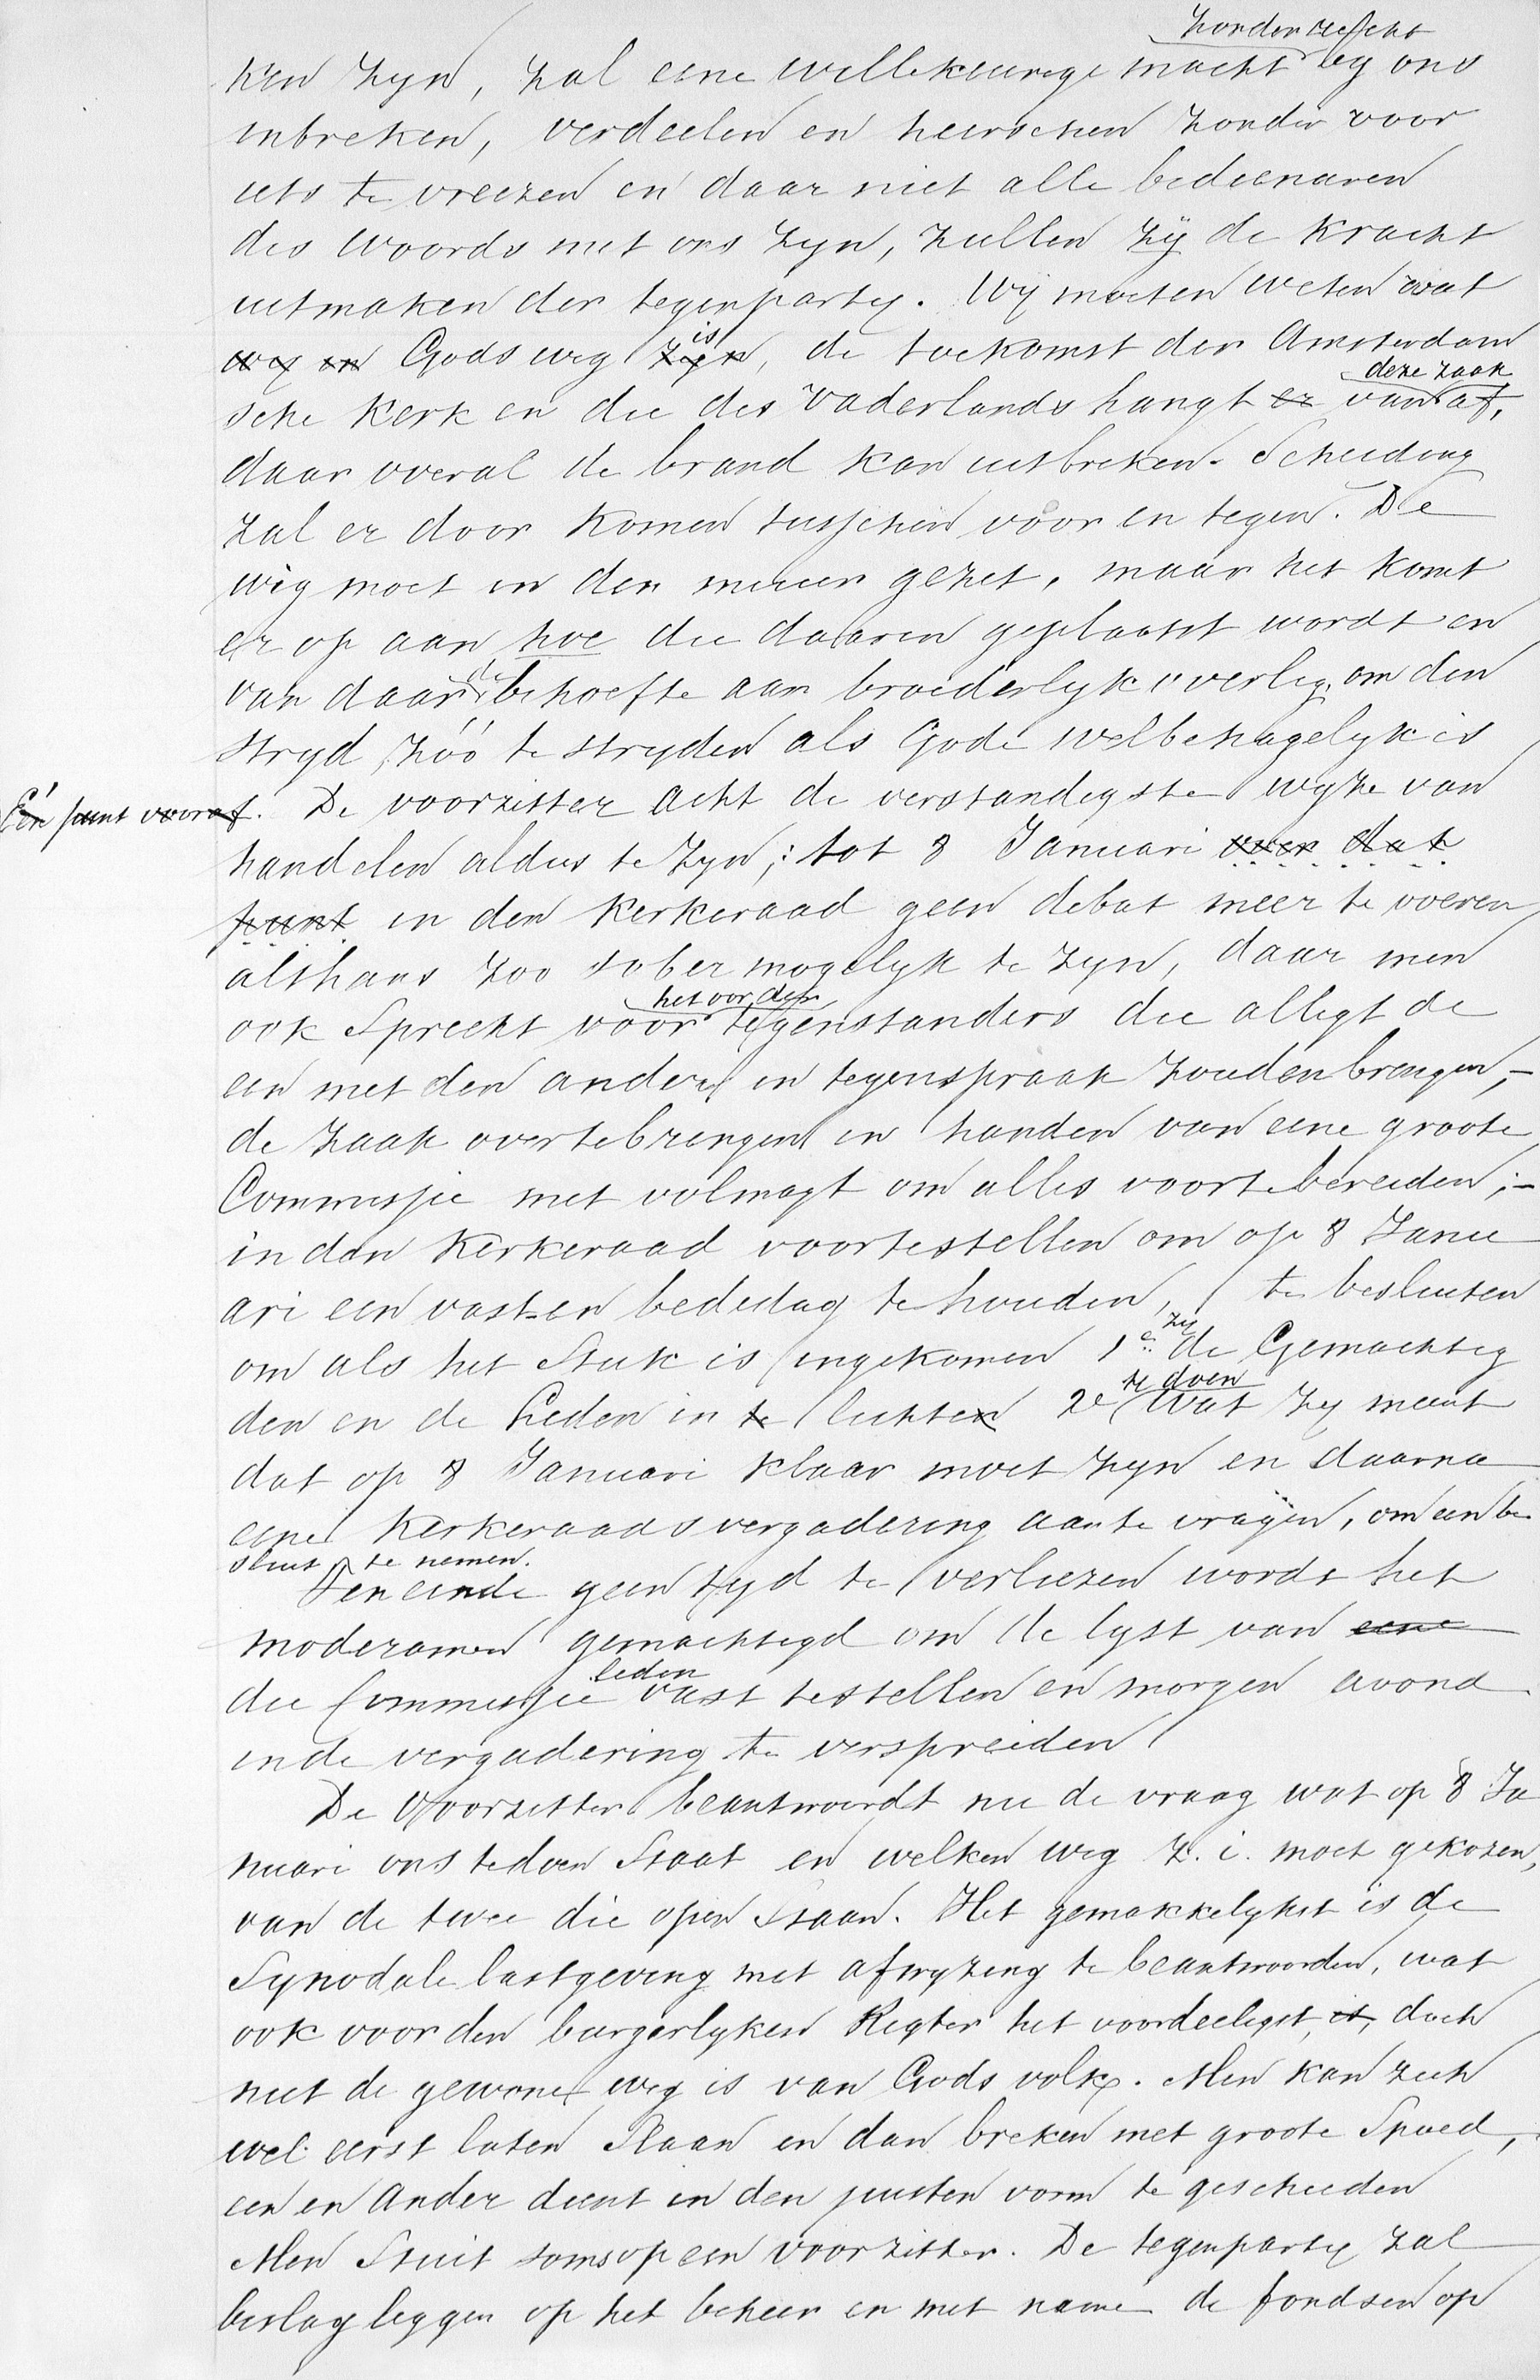 zonder recht
ken zyn, zal eene willekeurige macht by ons
inbreken, verdeelen en heerschen zonder voor
iets te vreezen en daar niet alle bedienaren
des Woords met ons zyn, zullen zÿ de kracht
uitmaken der tegenparty. Wÿ moeten weten wat
wij en Gods weg zijn is, de toekomst der Amsterdam
deze zaak
sche Kerk en die des Vaderlands hangt er van af,
daar overal de brand kan uitbreken. Scheiding
zal er door komen tusschen vóór en tegen. De
wig moet in den muur gezet, maar het komt
er op aan hoe die daarin geplaatst wordt en
van daar de behoefte aan broederlyk overleg, om den
stryd zóó te stryden als Gode welbehagelyk is
Eén punt vooraf. De voorzitter acht de verstandigste wyze van
handelen aldus te zyn,: tot 8 Januari over dat
punt in den kerkeraad geen debat meer te voeren,
althans zoo sober mogelyk te zyn, daar men
het oor der
ook Spreekt voor tegenstanders die alligt de
een met den ander in tegenspraak zouden brengen,-
de zaak overtebrengen in handen van eene groote
Commissie met volmagt om alles voortebereiden;-
in den Kerkeraad voortestellen om op 8 Janu
ari een vast-en bededag te houden, te besluiten
om als het Stuk is ingekomen 1e zy de Gemachtig
te doen
den en de Leden in te lichten 2e wat zy meent
dat op 8 Januari klaar moet zyn en daarna
eene Kerkeraadsvergadering aan te vragen, om een be
sluit te nemen.
Ten einde geen tyd te verliezen wordt het
moderamen gemachtigd om de lyst van eene
leden
die Commissie vast testellen en morgen avond
in de vergadering te verspreiden
De Voorzitter beantwoordt nu de vraag wat op 8 Ja
nuari ons tedoen Staat en welken weg z. i. moet gekozen,
van de twee die open Staan. Het gemakkelykst is de
Synodale lastgeving met afwyzing te beantwoorden, wat
ook voor den burgerlyken Regter het voordeeligst is, doch
niet de gewone weg is van Gods volk. Men kan zich
wel eerst laten Slaan en dan breken met groote Spoed,
een en ander dient in den juisten vorm te geschieden
Men Stuit soms op een Voorzitter. De tegenparty zal
beslag leggen op het beheer en met name de fondsen op